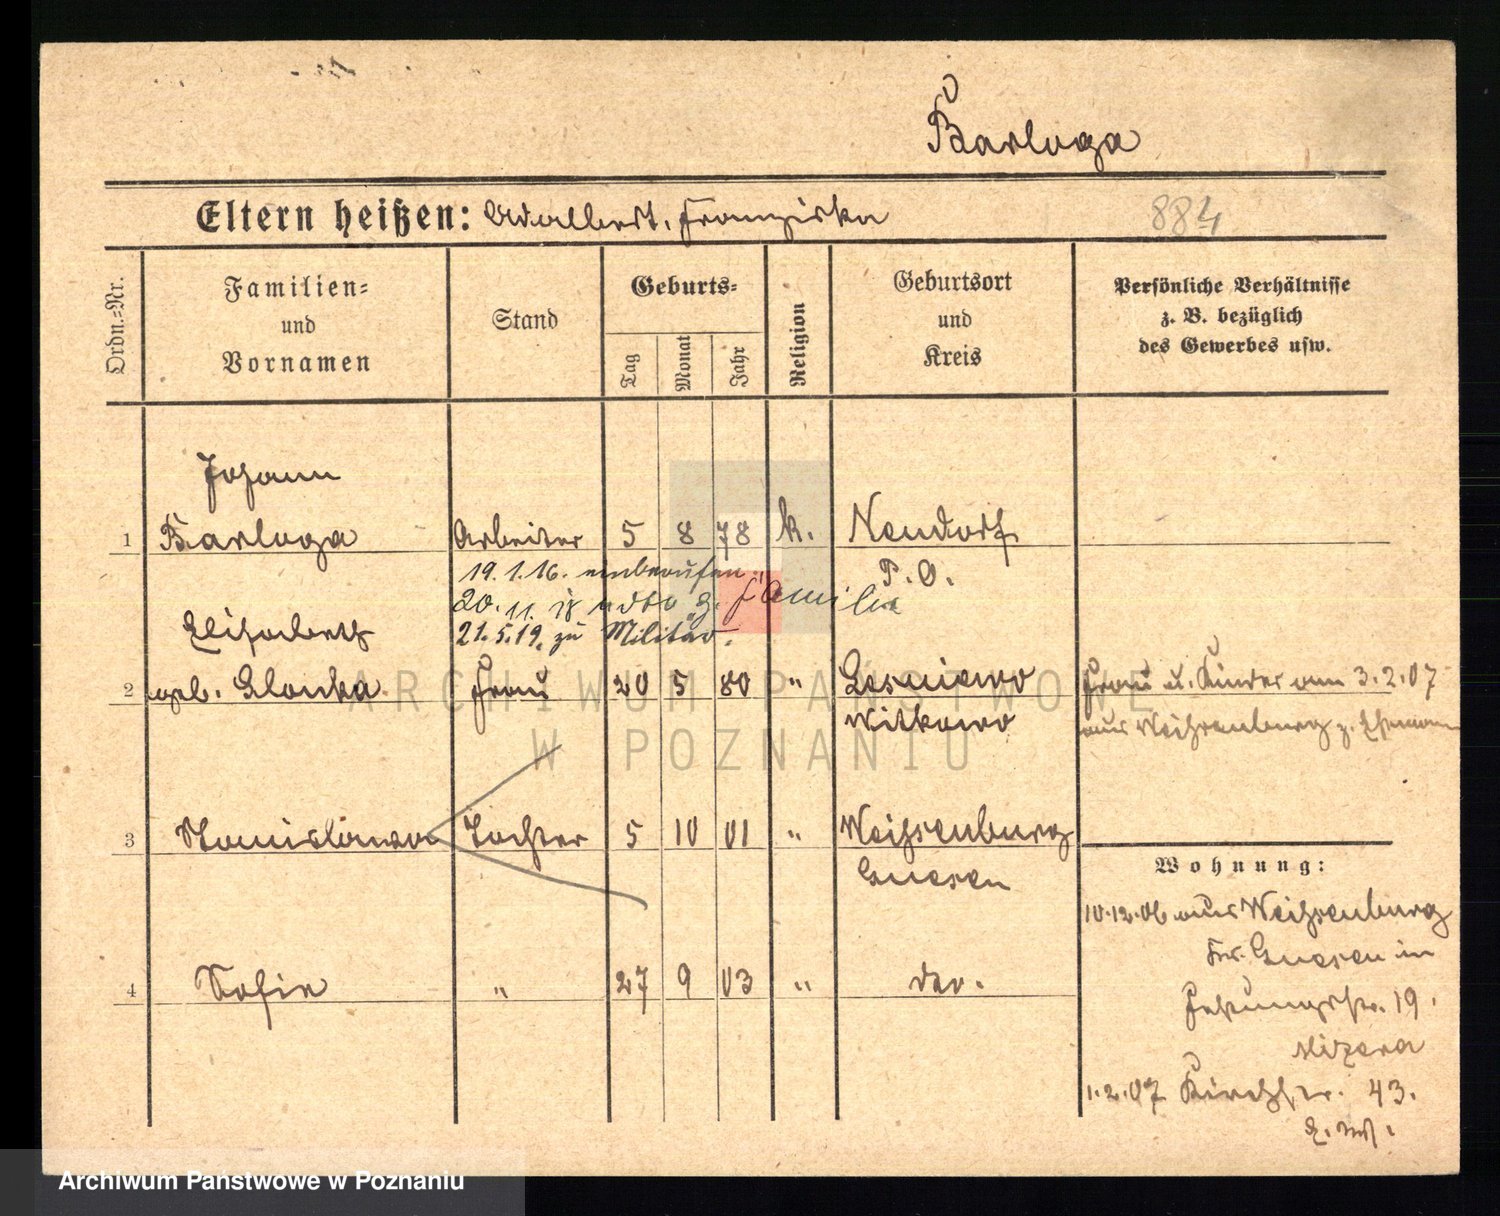 Barloga
Eltern heißen: Adalbert, Franziska
884
Ordn.-Nr.
Familien-
und
Vornamen
Stand
Geburts-
Tag
Monat
Jahr
Religion
Geburtsort
und
Kreis
Persönliche Verhältnisse
z. B. bezüglich
des Gewerbes usw.
Johann
1 Barloga Arbeiter 5 8 78 k. Neudorf
P. O.
19.1.16. einberufen
20.11.18 z. Familie
21.5.19. zu Militär.
Elisabeth
2 geb. Glonka Frau 20 5 80 " Lesniewo
Witkowo
Frau u. Kinder am 3.2.07
aus Weißenburg z. Ehemann
3 Stanislawa Tochter 5 10 01 " Weißenburg
Gnesen
Wohnung:
10.12.06 aus Weißenburg
Kr. Gnesen in
19.
Mizera
4 Sofie " 27 9 03 " do.
1.2.07 Kirchstr. 43.
ARCHIWUM PAŃSTWOWE
W POZNANIU
Archiwum Państwowe w Poznaniu